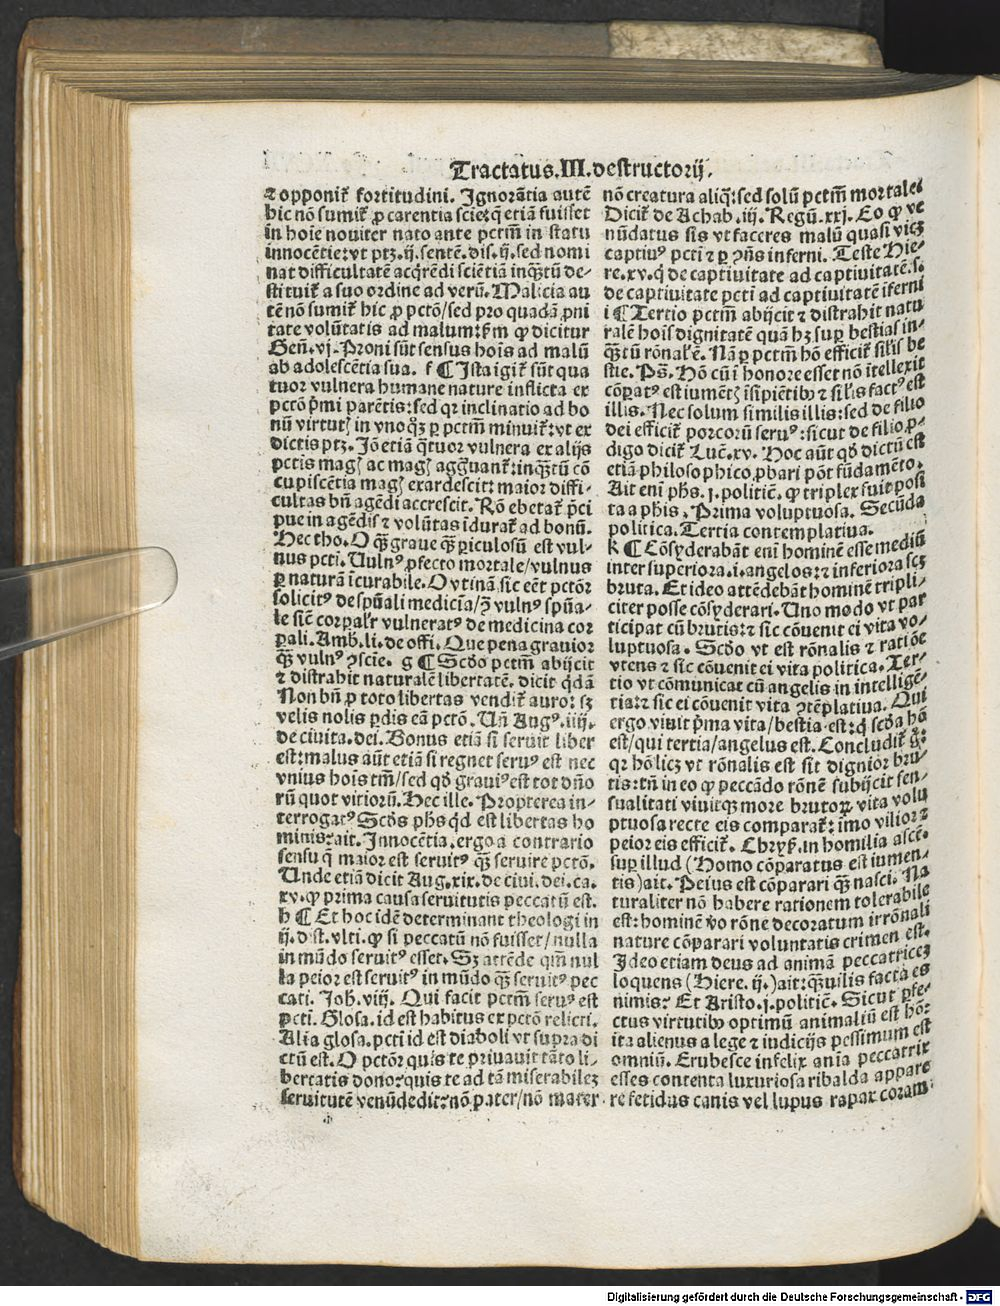 Tractatus.III.destructorij.
⁊ opponit᷑ fortitudini. Ignorãtia autẽ
hic nõ sumit᷑ ꝓ carentia sciẽ:q̃ etiã fuisset
in hoĩe noviter nato ante pctm̃ in statu
innocẽtie:vt ptꝫ.ij.sentẽ.dis.ij.sed nomi
nat difficultatẽ acq̃rẽdi sciẽtiã inqꝫ̃tũ de-
stituit᷑ a suo ordine ad verũ. Malicia au
tẽ nõ sumit᷑ hic ꝓ pctõ/sed pro quadã ꝓni
tate volũtatis ad malum:ẜm ꝙ dicitur
Geñ.vj. Proni sũt sensus hoĩs ad malũ
ab adolescẽtia sua. f ¶ Ista igit᷑ sũt qua
tuor vulnera humane nature inflicta ex
pctõ pͥmi parẽtis:sed qꝛ inclinatio ad bo
nũ virtutꝭ in vnoqꝫ ꝑ pctm̃ minuit᷑:vt ex
dictis ptꝫ. Iõ etiã q̃tuor vulnera ex alijs
pctis magꝭ ac magꝭ aggͣuant᷑:inqꝫ̃tũ cõ
cupiscẽtia magꝭ exardescit: maior diffi-
cultas bñ agẽdi accrescit. Rõ ebetat᷑ p̃ci
pue in agẽdis ⁊ volũtas ĩdurat᷑ ad bonũ.
Hec tho. O qꝫ̃ graue qꝫ̃ ꝑiculosũ est vul-
nus pcti. Vulnꝰ ꝓfecto mortale/vulnus
ꝑ naturã ĩcurabile. O vtinã sic eẽt pctõr
solicitꝰ de spũali medicĩa/ꝓ vulnꝰ spũa-
le siẽ corꝑalr̃ vulneratꝰ de medicina cor
ꝑali. Amb.li.de offi. Que pena grauior
qꝫ̃ vulnꝰ ꝯscie. g ¶ Scd̃o pctm̃ abijcit
⁊ distrahit naturalẽ libertatẽ. dicit qͥdã
Non bñ ꝓ toto libertas vendit᷑ auro: sꝫ
velis nolis ꝑdis eã pctõ. Vñ Augꝰ.iiij.
de ciuita.dei. Bonus etiã si seruit liber
est:malus aũt etiã si regnet seruꝰ est nec
vnius hoĩs tm̃/sed qd̃ grauiꝰ est tot dño
rũ quot vitiorũ. Hec ille. Propterea in-
terrogatꝰ Scd̃s pħs qͥd est libertas ho
minis:ait. Innocẽtia. ergo a contrario
sensu q̃ maior est seruitꝰ qꝫ̃ seruire pctõ.
Unde etiã dicit Aug.xix.de ciui.dei.ca.
xv.ꝙ prima causa seruitutis peccatũ est.
h ¶ Et hoc idẽ determinant theologi in
ij.dist.vlti.ꝙ si peccatũ nõ fuisset/nulla
in mũdo seruitꝰ esset. Sꝫ attẽde qm̃ nul
la peior est seruitꝰ in mũdo qꝫ̃ seruitꝰ pec
cati. Joh.viij. Qui facit pctm̃ seruꝰ est
pcti. Glosa.id est habitus ex pctõ relicti.
Alia glosa.pcti id est diaboli vt supra di
ctũ est. O pctõr quis te priuauit tãto li-
bertatis dono:quis te ad tã miserabilẽ
seruitutẽ venũdedit:nõ pater/nõ mater
nõ creatura aliq̃:sed solũ pctm̃ mortale
Dicit᷑ de Achab.iij.Regũ.xxj. Eo ꝙ ve
nũdatus sis vt faceres malũ quasi vicꝫ
captiuꝰ pcti ⁊ ꝑ ꝯñs inferni. Teste Hie-
re.xv.q̃ de captiuitate ad captiuitatẽ.s.
de captiuitate pcti ad captiuitatẽ ĩferni
i ¶ Tertio pctm̃ abijcit ⁊ distrahit natu
ralẽ hoĩs dignitatẽ quã hꝫ suꝑ bestias in-
qꝫ̃tũ rõnal᷑e. Nã ꝑ pctm̃ hõ efficit᷑ sil᷑is be
stie. Ps̃. Hõ cũ ĩ honore esset nõ ĩtellexit
cõꝑatꝰ est iumẽtꝭ ĩsipiẽtibꝰ ⁊ sil᷑is factꝰ est
illis. Nec solum similis illis: sed de filio
dei efficit᷑ porcorũ seruꝰ: sicut de filio ꝓ-
digo dicit᷑ Luẽ.xv. Hoc aũt qd̃ dictũ est
etiã philosophico ꝓbari põt fũdamẽto.
Ait eni phs̃.j.politiẽ. ꝙ triplex fuit posi
ta a phis. Prima voluptuosa. Secũda
politica. Tertia contemplatiua.
k ¶ Cõsyderabãt eni hominẽ esse mediũ
inter superiora.i.angelos:⁊ inferiora scꝫ
bruta. Et ideo attẽdebãt hominẽ tripli-
citer posse cõsyderari. Uno modo vt par
ticipat cũ brutis:⁊ sic cõuenit ei vita vo-
luptuosa. Scd̃o vt est rõnalis ⁊ ratiõe
vtens ⁊ sic cõuenit ei vita politica. Ter-
tio vt cõmunicat cũ angelis in intelligẽ-
tia:⁊ sic ei cõuenit vita ꝯtẽplatiua. Qui
ergo viuit pͥma vita/bestia est:q̃ scd̃a hõ
est/qui tertia/angelus est. Concludit᷑ g̃:
qꝛ hõ licꝫ vt rõnalis est sit dignior bru-
tis:tñ in eo ꝙ peccãdo rõnẽ subijcit sen-
sualitati viuitqꝫ more brutoꝝ vita volu
ptuosa recte eis comparat᷑: imo vilior ⁊
peior eis efficit᷑. Chrys̃.in homilia ascẽ.
suꝑ illud (Homo cõparatus est iumen-
tis)ait. Peius est cõparari qꝫ̃ nasci. Na
turaliter nõ habere rationem tolerabile
est: hominẽ ꝟo rõne decoratum irrõnali
nature cõparari voluntatis crimen est.
Ideo etiam deus ad animã peccatricẽ
loquens (Hiere.ij.)ait:qꝫ̃uilis facta es
nimis: Et Aristo.j.politiẽ. Sicut ꝑfe-
ctus virtutibꝰ optimũ animaliũ est hõ:
ita alienus a lege ⁊ iudicijs pessimum est
omniũ. Erubesce infelix aĩa peccatrix
esses contenta luxuriosa ribalda appare
re fetidus canis vel lupus rapax coram
Digitalisierung gefördert durch die Deutsche Forschungsgemeinschaft - DFG